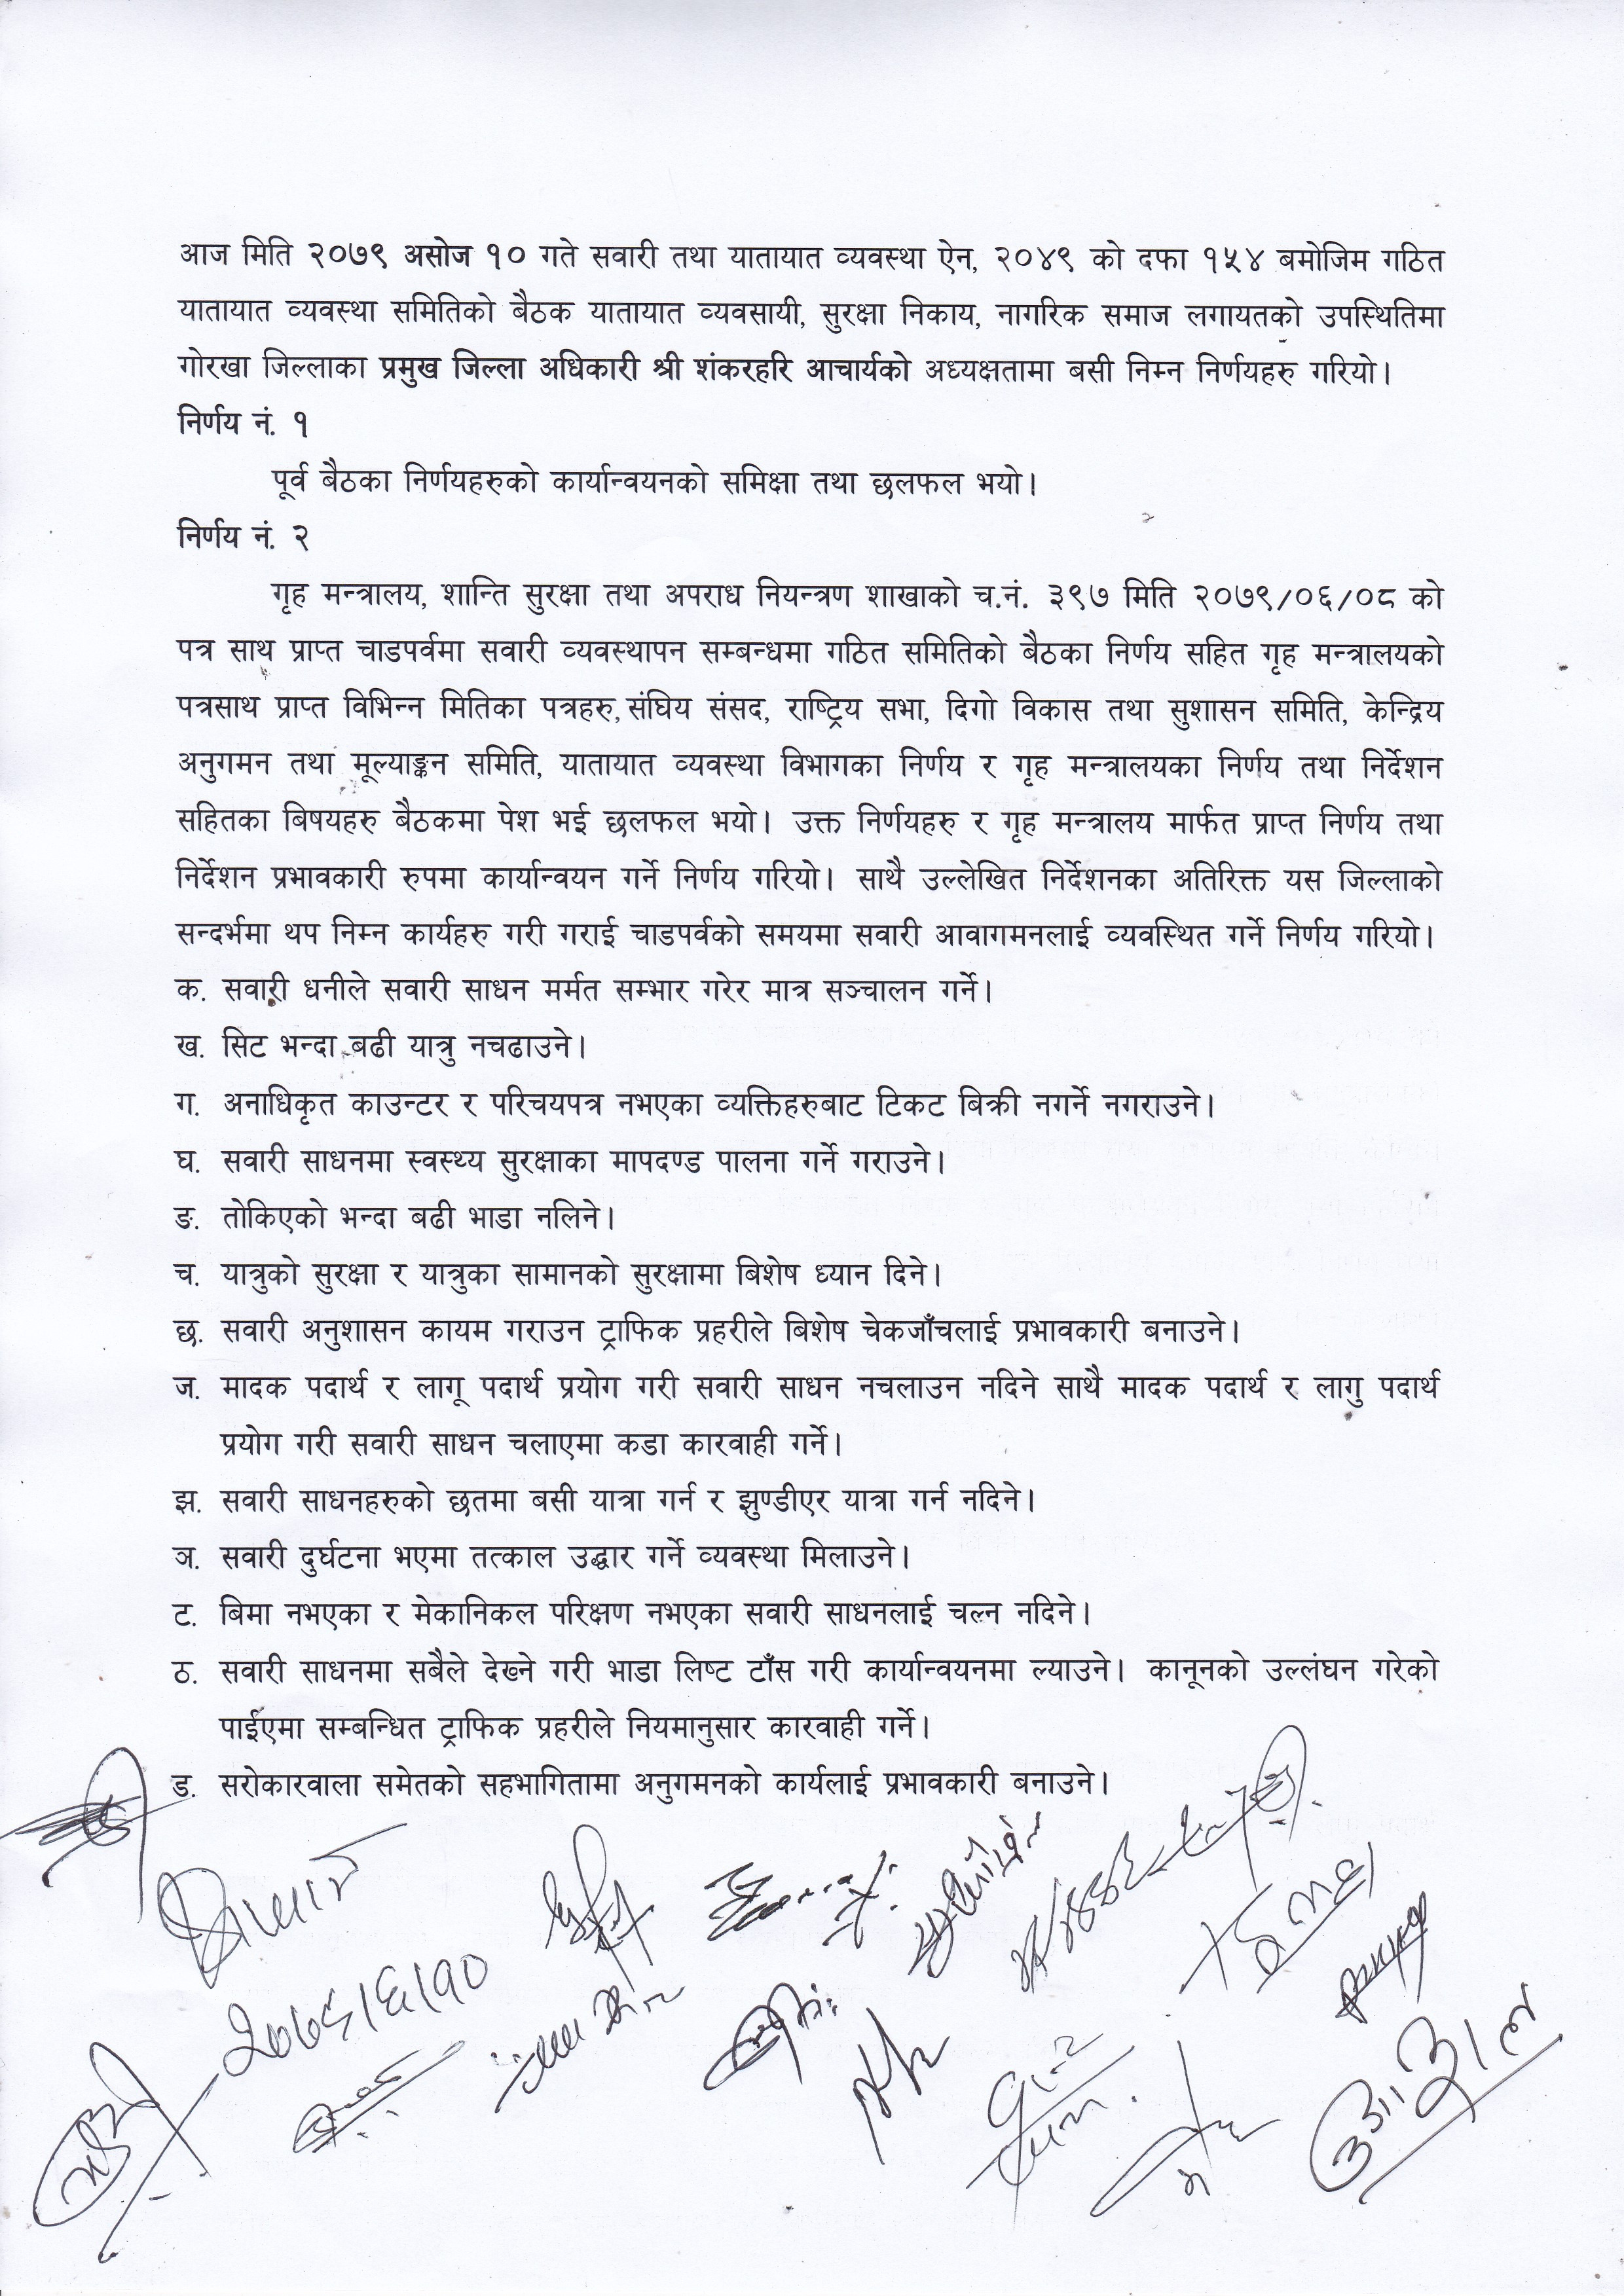 आज मिति २०७९ असोज १० गते सवारी तथा यातायात व्यवस्था ऐन, २०४९ को दफा १५४ बमोजिम गठित
यातायात व्यवस्था समितिको बैठक यातायात व्यवसायी, सुरक्षा निकाय, नागरिक समाज लगायतको उपस्थितिमा
गोरखा जिल्लाका प्रमुख जिल्ला अधिकारी श्री शंकरहरि आचार्यको अध्यक्षतामा बसी निम्न निर्णयहरु गरियो।
निर्णय नं. १
पूर्व बैठका निर्णयहरुको कार्यान्वयनको समिक्षा तथा छलफल भयो।
निर्णय नं. २
गृह मन्त्रालय, शान्ति सुरक्षा तथा अपराध नियन्त्रण शाखाको च.नं. ३९७ मिति २०७९/०६/०८ को
पत्र साथ प्राप्त चाडपर्वमा सवारी व्यवस्थापन सम्बन्धमा गठित समितिको बैठका निर्णय सहित गृह मन्त्रालयको
पत्रसाथ प्राप्त विभिन्न मितिका पत्रहरु, संघिय संसद, राष्ट्रिय सभा, दिगो विकास तथा सुशासन समिति, केन्द्रिय
अनुगमन तथा मूल्याङ्कन समिति, यातायात व्यवस्था विभागका निर्णय र गृह मन्त्रालयका निर्णय तथा निर्देशन
सहितका बिषयहरु बैठकमा पेश भई छलफल भयो। उक्त निर्णयहरु र गृह मन्त्रालय मार्फत प्राप्त निर्णय तथा
निर्देशन प्रभावकारी रुपमा कार्यान्वयन गर्ने निर्णय गरियो। साथै उल्लेखित निर्देशनका अतिरिक्त यस जिल्लाको
सन्दर्भमा थप निम्न कार्यहरु गरी गराई चाडपर्वको समयमा सवारी आवागमनलाई व्यवस्थित गर्ने निर्णय गरियो।
क. सवारी धनीले सवारी साधन मर्मत सम्भार गरेर मात्र सञ्चालन गर्ने।
ख. सिट भन्दा बढी यात्रु नचढाउने।
ग. अनाधिकृत काउन्टर र परिचयपत्र नभएका व्यक्तिहरुबाट टिकट बिक्री नगर्ने नगराउने।
घ. सवारी साधनमा स्वस्थ्य सुरक्षाका मापदण्ड पालना गर्ने गराउने।
ङ. तोकिएको भन्दा बढी भाडा नलिने।
च. यात्रुको सुरक्षा र यात्रुका सामानको सुरक्षामा बिशेष ध्यान दिने।
छ. सवारी अनुशासन कायम गराउन ट्राफिक प्रहरीले बिशेष चेकजाँचलाई प्रभावकारी बनाउने।
ज. मादक पदार्थ र लागू पदार्थ प्रयोग गरी सवारी साधन नचलाउन नदिने साथै मादक पदार्थ र लागु पदार्थ
प्रयोग गरी सवारी साधन चलाएमा कडा कारवाही गर्ने।
झ. सवारी साधनहरुको छतमा बसी यात्रा गर्न र झुण्डीएर यात्रा गर्न नदिने।
ञ. सवारी दुर्घटना भएमा तत्काल उद्धार गर्ने व्यवस्था मिलाउने।
ट. बिमा नभएका र मेकानिकल परिक्षण नभएका सवारी साधनलाई चल्न नदिने।
ठ. सवारी साधनमा सबैले देख्ने गरी भाडा लिष्ट टाँस गरी कार्यान्वयनमा ल्याउने। कानूनको उल्लंघन गरेको
पाईएमा सम्बन्धित ट्राफिक प्रहरीले नियमानुसार कारवाही गर्ने।
ड. सरोकारवाला समेतको सहभागितामा अनुगमनको कार्यलाई प्रभावकारी बनाउने।
२०७९।६।१०